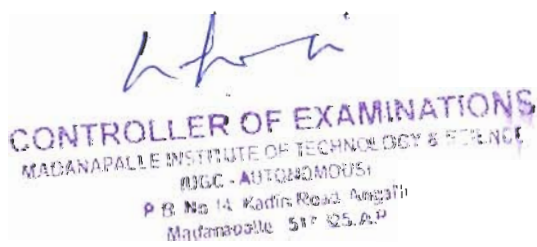 CONTROLLER OF EXAMINATIONS
MADANAPALLE INSTITUTE OF TECHNOLOGY & SCIENCE
(UGC - AUTONOMOUS)
P B. No 14, Kadiri Road, Angallu
Madanapalle 517 325. A.P